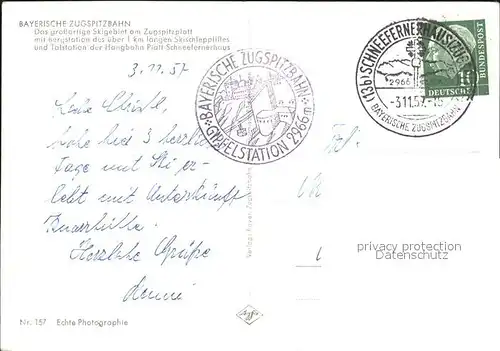 BAYERISCHE ZUGSPITZBAHN
Das großartige Skigebiet am Zugspitzplatt
mit Bergstation des über 1 km langen Skischleppliftes
und Talstation der Hangbahn Platt-Schneefernerhaus
3.11.57
habe hier 3 herrliche
Tage mit Ski er-
lebt mit Unterkunft
Knorrhütte.
Herzliche Grüße
BAYERISCHE ZUGSPITZBAHN
GIPFELSTATION 2966 m
(13b) SCHNEEFERNERHAUS
2966
-3.11.57.-15
BAYERISCHE ZUGSPITZBAHN
DEUTSCHE
BUNDESPOST
Frl.
privacy protection
Datenschutz
Nr. 157 Echte Photographie